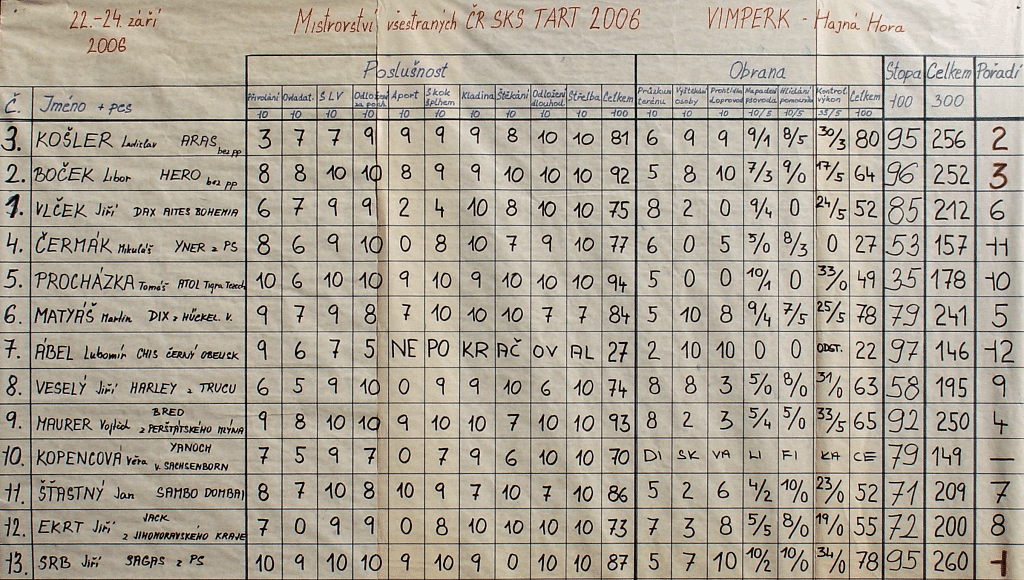 22.-24. září 2006 Mistrovství všestraných ČR SKS TART 2006 VIMPERK - Hajná Hora
Poslušnost Obrana Stopa Celkem Pořadí
Č. Jméno + pes Přivolání Ovladat. SLV Odložení za pohyb. Aport Skok šplhem Kladina Štěkání Odložení dlouhod. Střelba Celkem Průzkum terénu Vyštěkání osoby Prohlídka doprovod Napadení psovoda Hlídání pomocníka Kontrol. výkon Celkem 100 300
10 10 10 10 10 10 10 10 10 10 100 10 10 10 10/5 10/5 35/5 100
3. KOŠLER Ladislav ARAS bez pp 3 7 7 9 9 9 9 8 10 10 81 6 9 9 9/1 8/5 30/3 80 95 256 2
2. BOČEK Libor HERO bez pp 8 8 10 10 8 9 9 10 10 10 92 5 8 10 7/3 9/0 17/5 64 96 252 3
1. VLČEK Jiří DAX AITES BOHEMIA 6 7 9 9 2 4 10 8 10 10 75 8 2 0 9/4 0 24/5 52 85 212 6
4. ČERMÁK Mikuláš YNER z PS 8 6 9 10 0 8 10 7 9 10 77 6 0 5 5/0 8/3 0 27 53 157 11
5. PROCHÁZKA Tomáš ATOL Tigra 10 6 10 10 9 10 9 10 10 10 94 5 0 0 10/1 0 33/0 49 35 178 10
6. MATYÁŠ Martin DIX z HÜCKEL. V. 9 7 9 8 7 10 10 10 7 7 84 5 10 8 9/4 7/5 25/5 78 79 241 5
7. ÁBEL Lubomír CHIS ČERNÝ OBELISK 9 6 7 5 NE PO KR AČ OV AL 27 2 10 10 0 0 ODST. 22 97 146 12
8. VESELÝ Jiří HARLEY z TRUCU 6 5 9 10 0 9 9 10 6 10 74 8 8 3 5/0 8/0 31/0 63 58 195 9
9. MAURER Vojtěch BRED z PERŠTÁTSKÉHO MLÝNA 9 8 10 10 9 10 10 7 10 10 93 8 2 3 5/4 5/0 33/5 65 92 250 4
10. KOPENCOVÁ Věra YANOCH v. SACHSENBORN 7 5 9 7 0 7 9 6 10 10 70 DI SK VA LI FI KA CE 79 149 —
11. ŠŤASTNÝ Jan SAMBO DOMBAJ 8 7 10 8 10 9 7 10 7 10 86 5 2 6 4/2 10/0 23/0 52 71 209 7
12. EKRT Jiří JACK z JIHOMORAVSKÉHO KRAJE 7 0 9 9 0 8 10 10 10 10 73 7 3 8 5/5 8/0 19/0 55 72 200 8
13. SRB Jiří SAGAS z PS 10 9 10 10 9 10 9 0 10 10 87 5 7 10 10/2 10/0 34/0 78 95 260 1